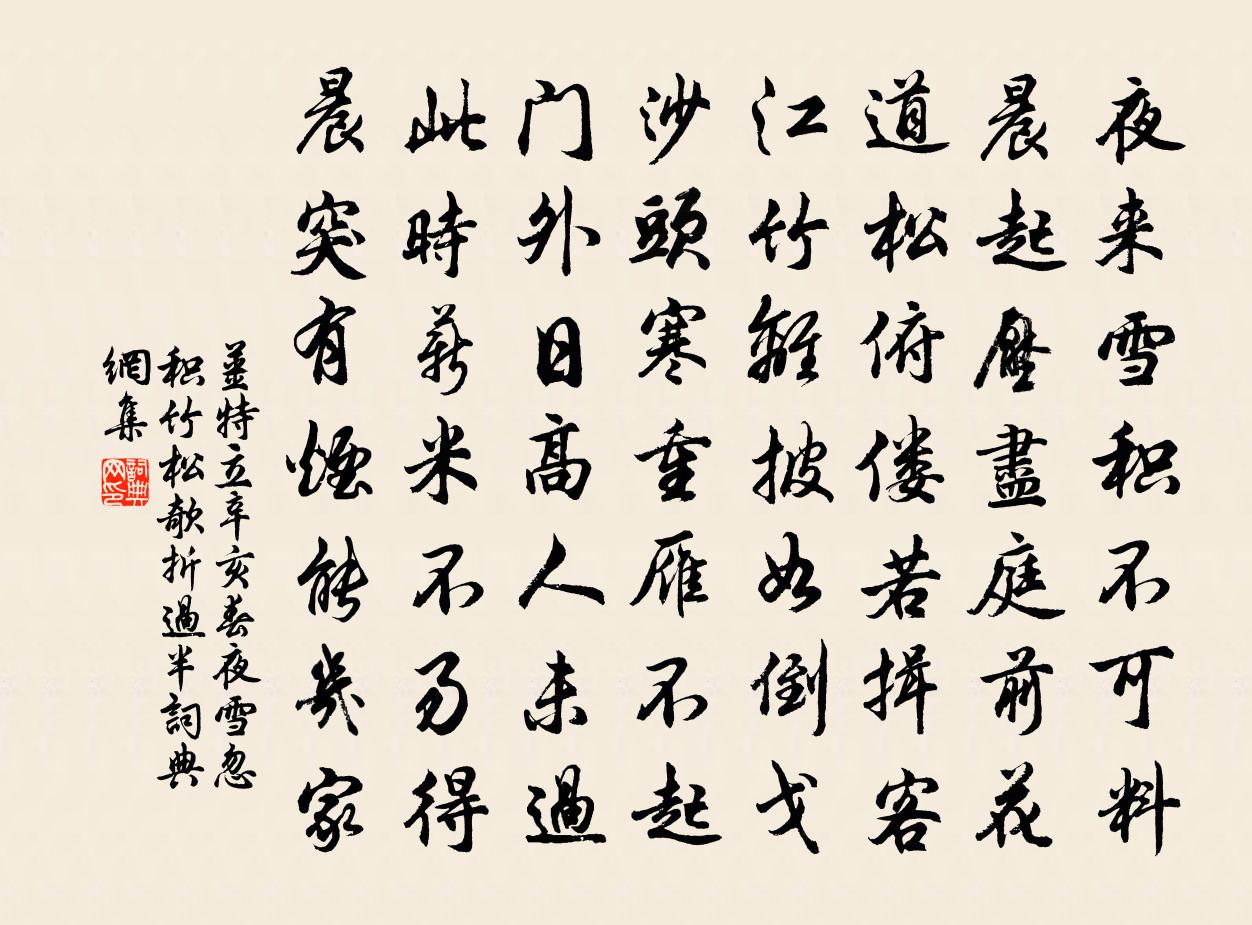 夜来雪积不可料
晨起壓盡庭前花
道松俯偻若揖客
江竹離披如倒戈
沙頭寒重雁不起
门外日高人未過
此時薪米不易得
晨突有煙能幾家
姜特立辛亥春夜雪忽
积竹松欹折過半詞典
網集
詞典
网印